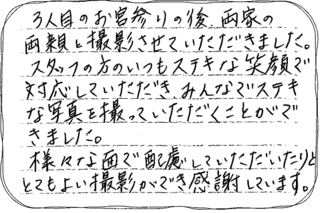 3人目のお宮参りの後、両家の
両親と撮影させていただきました。
スタッフの方のいつもステキな笑顔で
対応していただき、みんなでステキ
な写真を撮っていただくことがで
きました。
様々な面で配慮していただいたりと
とてもよい撮影ができ感謝しています。